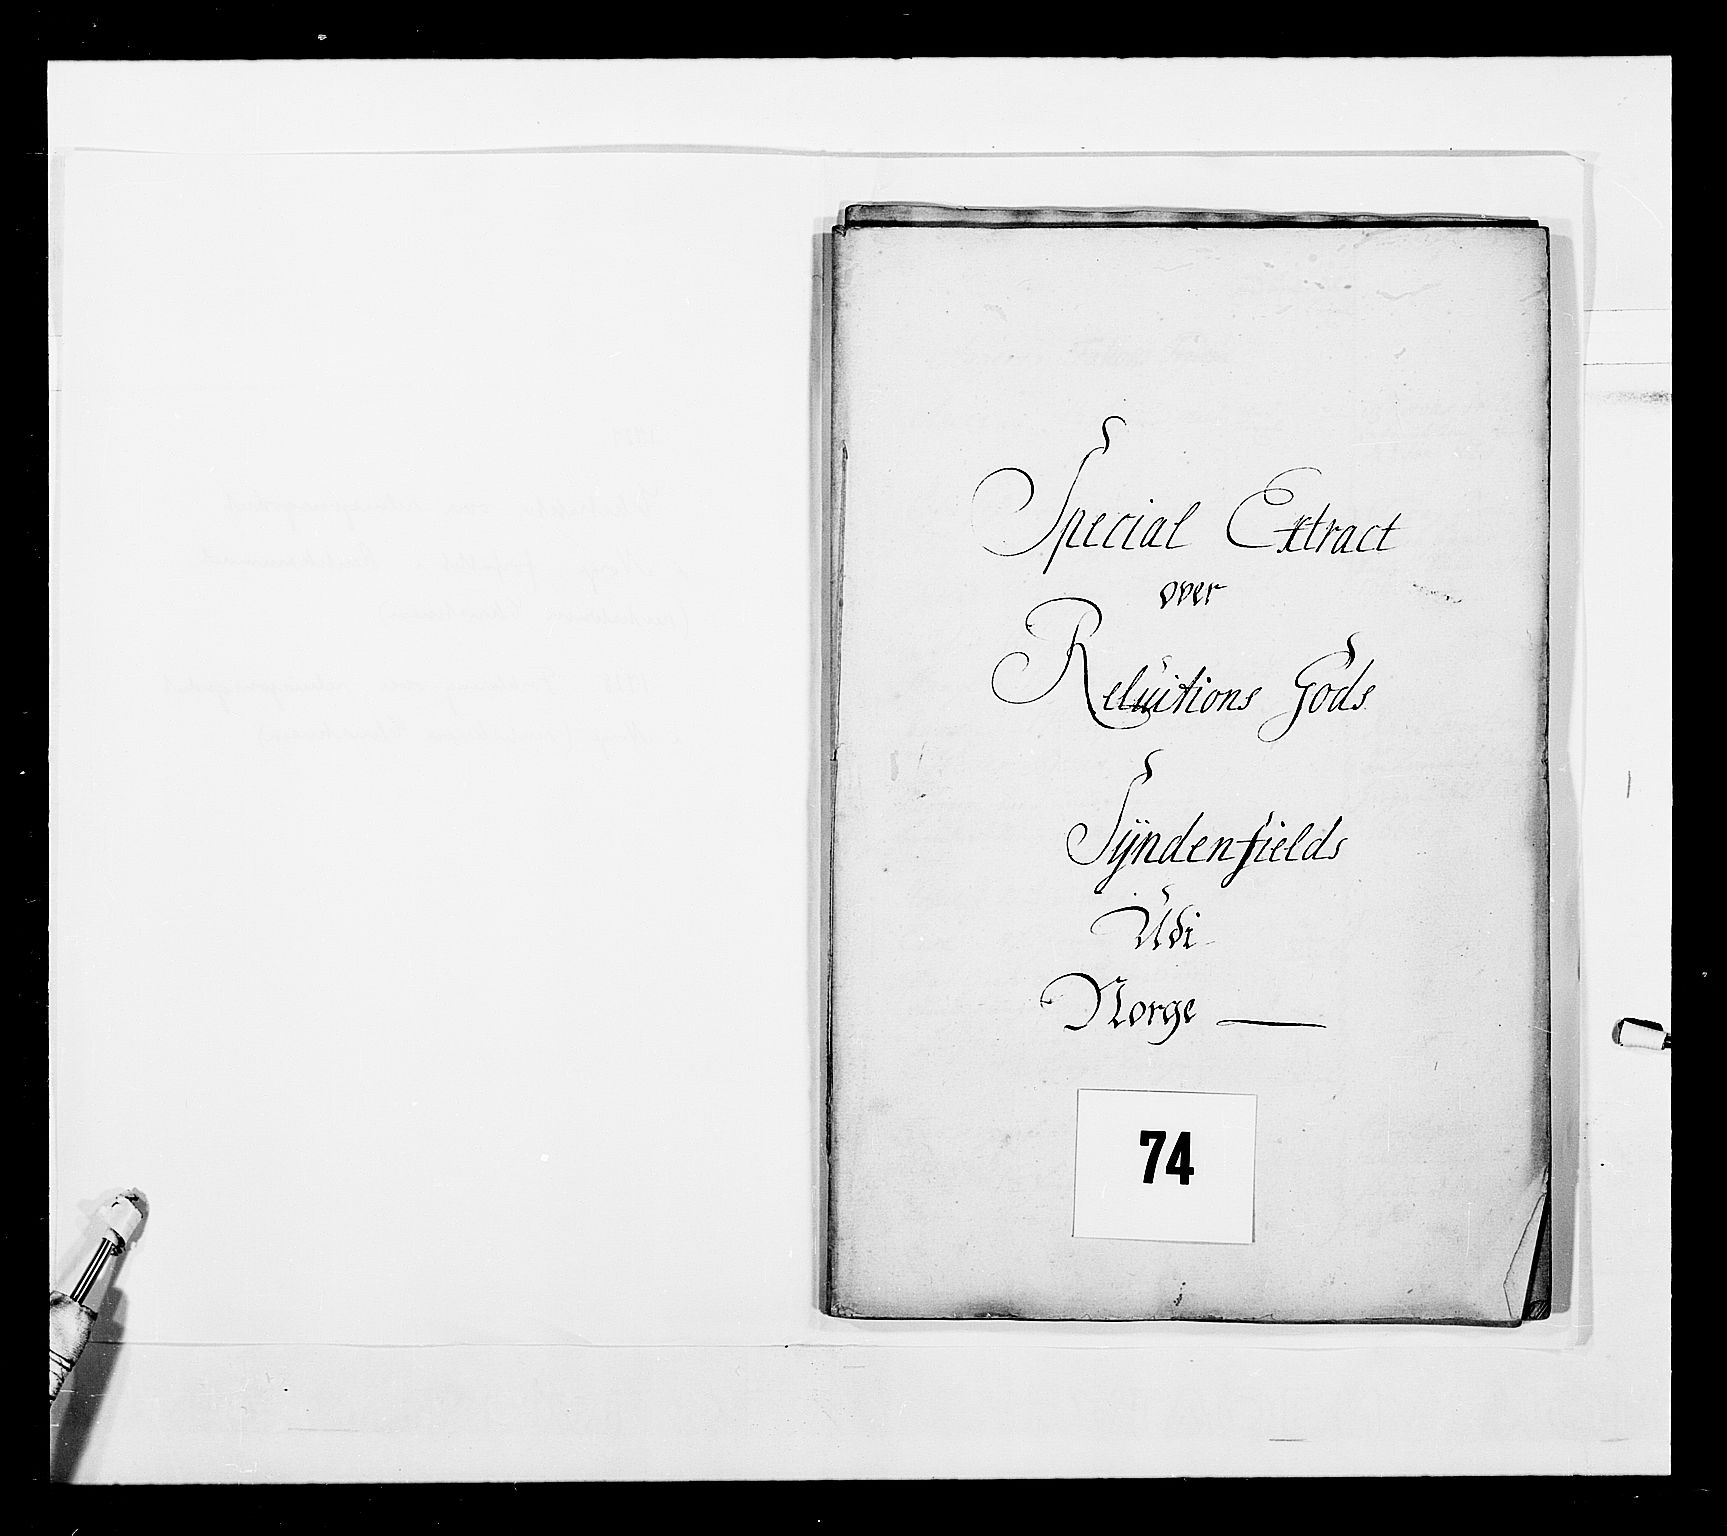 Special Extract
over
Relüitions Gods
Sÿndenfields
Üdi
Norge
74